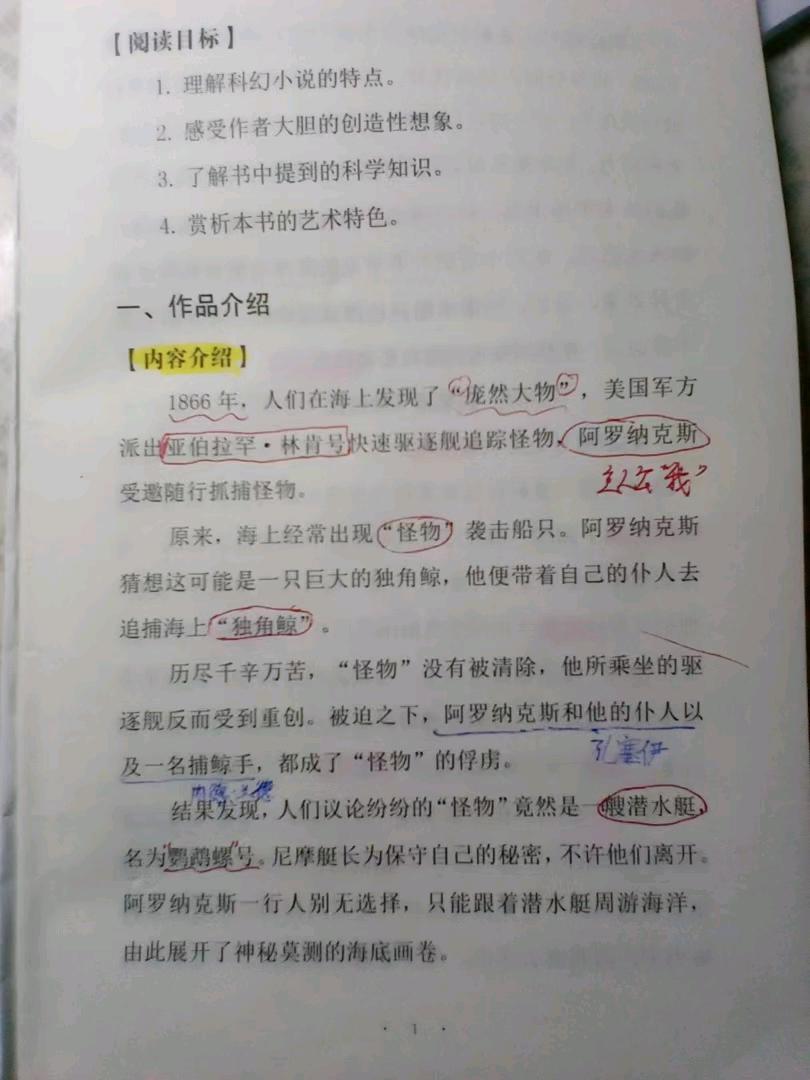 【阅读目标】
1. 理解科幻小说的特点。
2. 感受作者大胆的创造性想象。
3. 了解书中提到的科学知识。
4. 赏析本书的艺术特色。
一、作品介绍
【内容介绍】
1866 年，人们在海上发现了“庞然大物”，美国军方
派出亚伯拉罕·林肯号快速驱逐舰追踪怪物，阿罗纳克斯
受邀随行抓捕怪物。
“我”
原来，海上经常出现“怪物”袭击船只。阿罗纳克斯
猜想这可能是一只巨大的独角鲸，他便带着自己的仆人去
追捕海上“独角鲸”。
历尽千辛万苦，“怪物”没有被清除，他所乘坐的驱
逐舰反而受到重创。被迫之下，阿罗纳克斯和他的仆人以
孔塞伊
及一名捕鲸手，都成了“怪物”的俘虏。
结果发现，人们议论纷纷的“怪物”竟然是一艘潜水艇，
名为“鹦鹉螺”号。尼摩艇长为保守自己的秘密，不许他们离开。
阿罗纳克斯一行人别无选择，只能跟着潜水艇周游海洋，
由此展开了神秘莫测的海底画卷。
· 1 ·